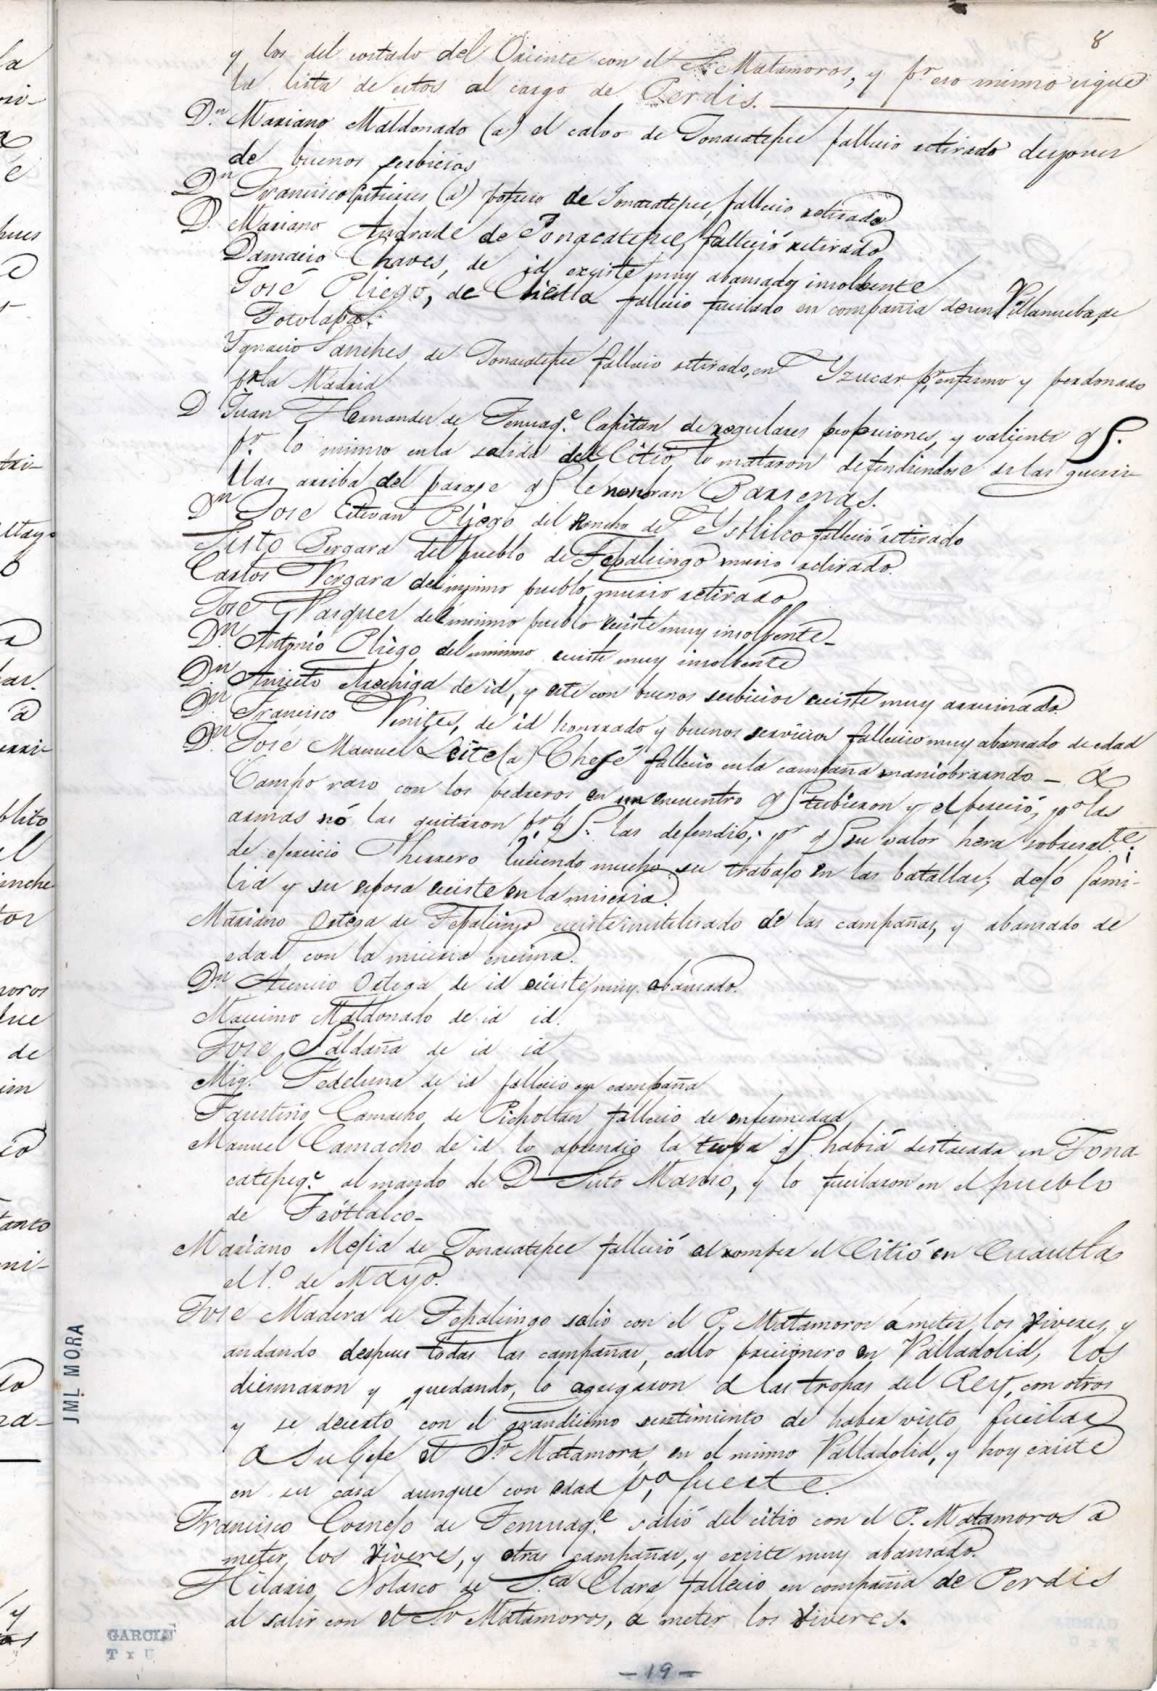 8
y los del costado del Oriente con el Sr. Matamoros, y pr. eso mismo sigue
la lista de estos al cargo de Perdis.
Dn. Mariano Maldonado (a) el calvo de Tonacatepec fallecio retirado despues
de buenos serbicios
Dn Francisco Gutierres (a) potrero de Tonacatepec, fallecio retirado
D. Mariano Andrade de Tonacatepec, fallecio retirado
Damacio Chaves, de id existe muy abansado y insolvente
José Pliego, de Chietla fallecio fucilado en compañia de un Villanueba, de
Totolapa.
Ygnacio Sanches, de Tonacatepec fallecio retirado, en Yzucar pr. enfermo y perdonado
pr. la Madrid
D Juan Hernandes de Temuaq.e Capitan de regulares propociones, y valiente q S.
pr. lo mismo en la salida del Citio, lo mataron defendiendose de las guerri-
llas arriba del parage q S le nombran Barsenas.
Dn Jose Estevan Pliego del Rancho de Ystlilco fallecio retirado
Sisto Bergara del pueblo de Tepalcingo murio retirado.
Carlos Vergara del mismo pueblo, murio retirado
José Vasques del mismo pueblo existe muy insolbente-
Dn. Antonio Pliego del mismo existe muy insolbente
Dn Aniceto Arechiga de id, y este con buenos serbicios existe muy arruinado.
Dn Francisco Venites, de id honrrado y buenos servicios fallecio muy abansado de edad
Dn José Manuel Leite (a) Chepe fallecio en la campaña maniobrando - a
Campo raso con los pedreros en un encuentro q S tubieron y el perecio, po. las
armas nó las quitaron pr. q S. las defendio, pr. q S su valor hera sobresalte.
de ejercicio herrero luciendo mucho su trabajo en las batallas; dejó fami-
lia y su esposa existe en la miseria.
Mariano Ortega de Tepalcingo existe inutilisado de las campañas, y abansado de
edad con la miseria encima.
Dn Asencio Ortega de id existe muy abansado.
Maximo Maldonado de id id.
José Saldaña de id id
Mig.l Tedeluna de id fallecio en campaña
Faustino Camacho, de Picholtan fallecio de enfermedad
Manuel Camacho de id lo aprendio la tropa q S habia destacada en Tona
catepeq.e al mando de D Sisto Manso, y lo fucilaron en el pueblo
de
Mariano Mejia de Tonacatepec falleció al romper el Citió en Cuautla
el 1.o de Mayo.
Jose Madera de Tepalcingo salio con el P. Matamoros a meter los viveres, y
andando despues todas las campañas, callo pricionero en Valladolid, los
diesmaron y quedando, lo agregaron a las tropas del Rey, con otros
y se decerto con el grandisimo sentimiento de haber visto fucilar
a su Gefe el Sr. Matamoros, en el mismo Valladolid, y hoy existe
en su casa aunque con edad po. fuerte.
Francisco Cornejo de Temuaq.e salió del citio con el P. Matamoros a
meter los viveres, y otras campañas, y existe muy abansado.
Hilario Nolasco de Sta Clara fallecio en compañia de Perdis
al salir con el Sr Matamoros, a meter los viveres.
JML MORA
GARCIA
T x U
- 19 -